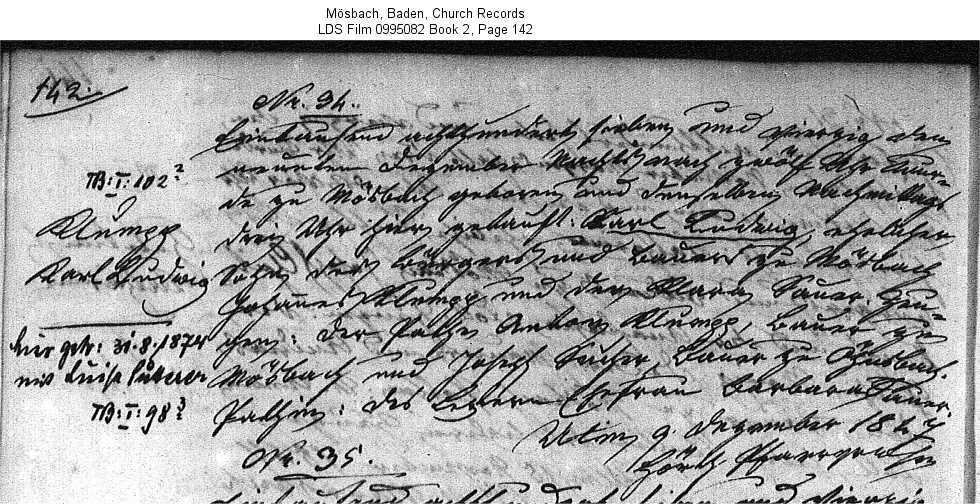 Mösbach, Baden, Church Records
LDS Film 0995082 Book 2, Page 142
142.
Nr. 34.
Eintausend achthundert sieben und vierzig den
neunten Dezember Nachts nach zwölf Uhr wur-
de zu Mösbach geboren und denselben Nachmittags
drei Uhr hier getauft: Karl Ludwig, ehelicher
Sohn des Bürgers und Bauers zu Mösbach
Johannes Klumpp und der Klara Sauer. Zeu-
gen: der Pathe Anton Klumpp, Bauer zu
Mösbach und Joseph Bauer zu Önsbach.
Pathin: des Ehefrau Barbara
9. Dezember 1847
TB: I: 102
Klumpp
Karl Ludwig
hier getr: 31.8.1874
mit Luise
TB: I: 98
Nr. 35.